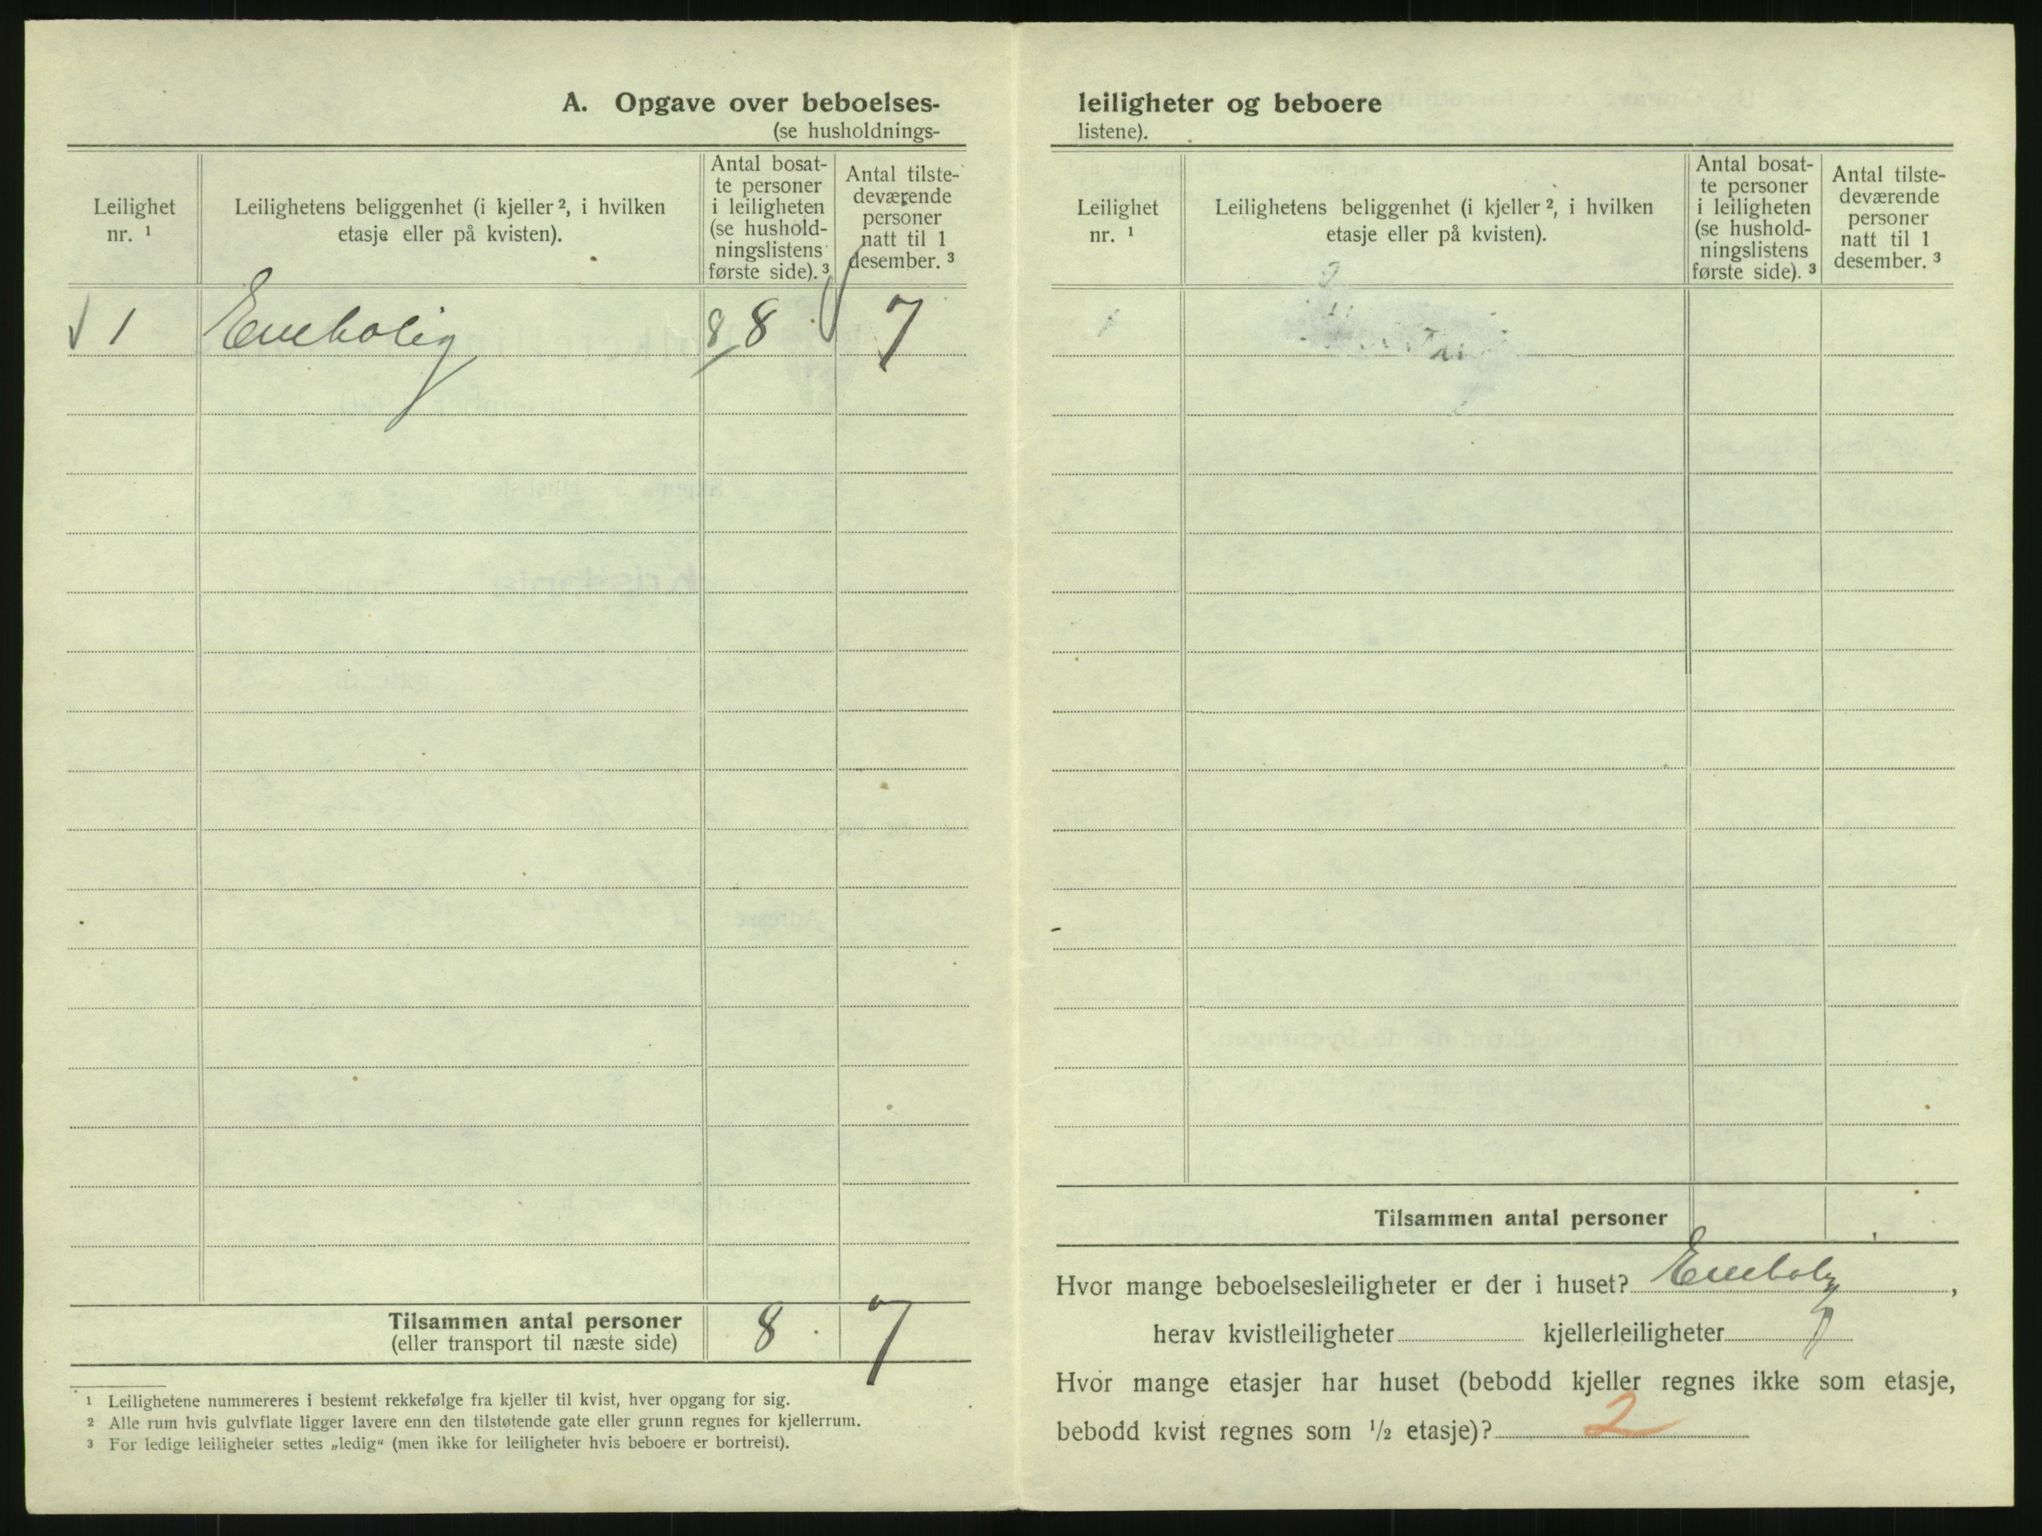 A. Opgave over beboelses-
(se husholdnings-
Leilighet nr. ¹
Leilighetens beliggenhet (i kjeller ², i hvilken etasje eller på kvisten).
Antal bosat-
te personer
i leiligheten
(se hushold-
ningslistens
første side). ³
Antal tilste-
deværende
personer
natt til 1
desember. ³
√ 1 Enebolig 8 8 7
Tilsammen antal personer 8 7
(eller transport til næste side)
¹ Leilighetene nummereres i bestemt rekkefølge fra kjeller til kvist, hver opgang for sig.
² Alle rum hvis gulvflate ligger lavere enn den tilstøtende gate eller grunn regnes for kjellerrum.
³ For ledige leiligheter settes „ledig“ (men ikke for leiligheter hvis beboere er bortreist).
leiligheter og beboere
listene).
Leilighet nr. ¹
Leilighetens beliggenhet (i kjeller ², i hvilken etasje eller på kvisten).
Antal bosat-
te personer
i leiligheten
(se hushold-
ningslistens
første side). ³
Antal tilste-
deværende
personer
natt til 1
desember. ³
1
Tilsammen antal personer
Hvor mange beboelsesleiligheter er der i huset? Enebolig,
herav kvistleiligheter kjellerleiligheter
Hvor mange etasjer har huset (bebodd kjeller regnes ikke som etasje,
bebodd kvist regnes som ½ etasje)? 2